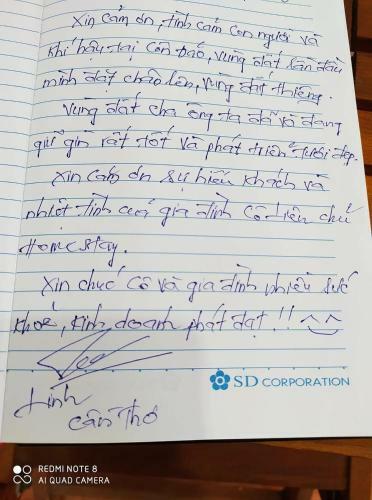 Xin cảm ơn, tình cảm con người và
khí hậu tại Côn Đảo, vùng đất lần đầu
mình đặt chân lên, vùng đất thiêng.
Vùng đất cha ông ta đã và đang
giữ gìn rất tốt và phát triển tươi đẹp.
Xin cảm ơn sự hiếu khách và
nhiệt tình của gia đình cô Liên chủ
Homestay.
Xin chúc cô và gia đình nhiều sức
khoẻ, kinh doanh phát đạt!! ^^
SD CORPORATION
Linh
Cần Thơ
REDMI NOTE 8
AI QUAD CAMERA